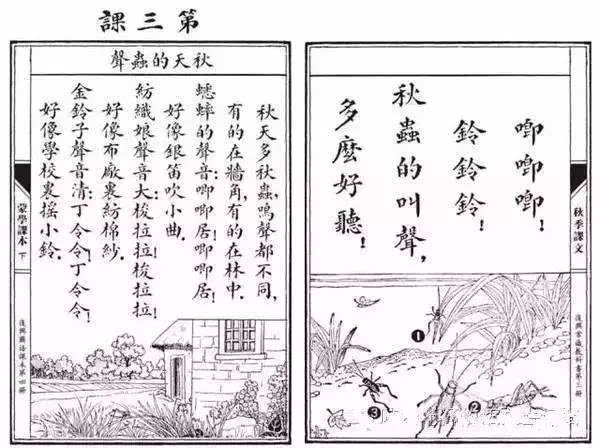 第三課
唧唧唧!
鈴鈴鈴!
秋蟲的叫聲,
多麼好聽!
秋季課文
復興常識教科書第三冊
❶
❷
❸
秋天的蟲聲
秋天多秋蟲,鳴聲都不同,
有的在牆角,有的在林中.
蟋蟀的聲音:唧唧居!唧唧居!
好像銀笛吹小曲.
紡織娘聲音大:梭拉拉!梭拉拉!
好像布廠裏紡棉紗.
金鈴子聲音清:丁令令!丁令令!
好像學校裏搖小鈴.
蒙學課本 下
復興國語課本第四冊